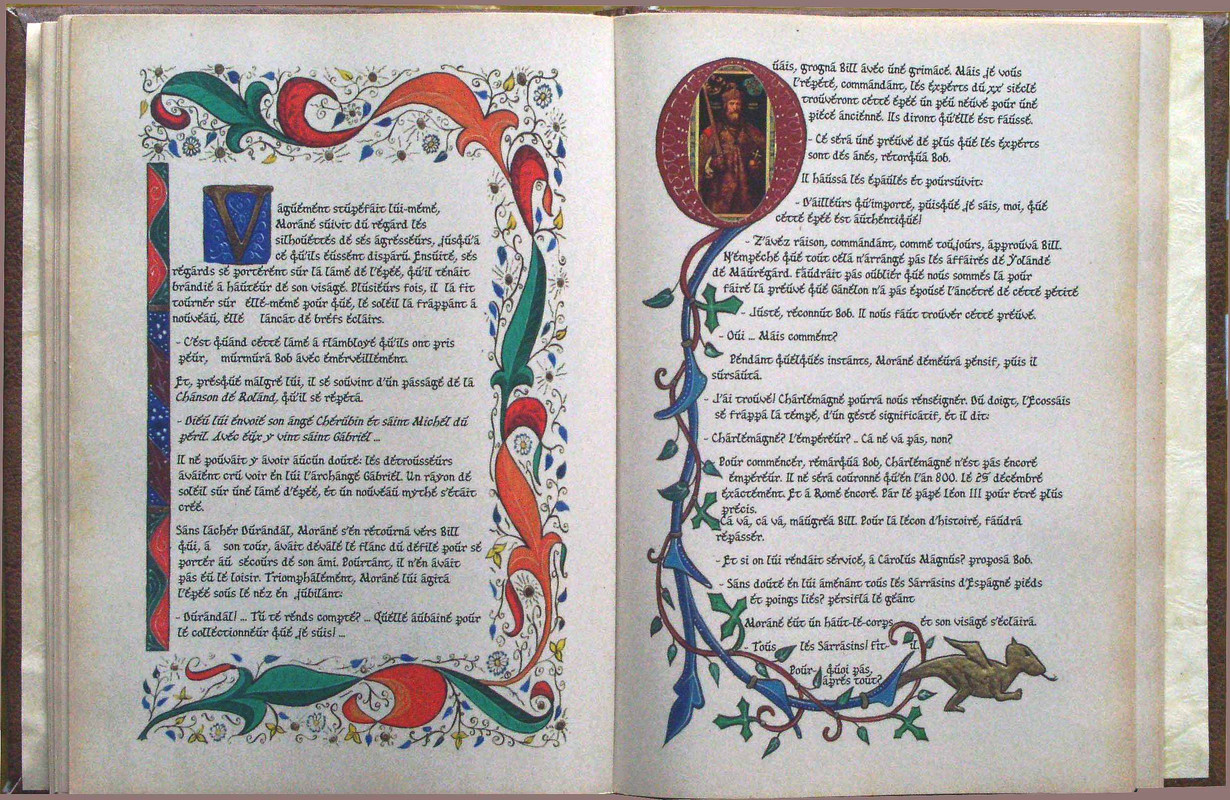 Vaguement stupéfait lui-même,
Morane suivit du regard les
silhouettes de ses agresseurs, jusqu'à
ce qu'ils eussent disparu. Ensuite, ses
regards se portèrent sur la lame de l'épée, qu'il tenait
brandie à hauteur de son visage. Plusieurs fois, il la fit
tourner sur elle-même pour que, le soleil la frappant à
nouveau, elle lançât de brefs éclairs.
- C'est quand cette lame a flamboyé qu'ils ont pris
peur, murmura Bob avec émerveillement.
Et, presque malgré lui, il se souvint d'un passage de la
Chanson de Roland, qu'il se répéta.
- Dieu lui envoie son ange Chérubin et saint Michel du
péril. Avec eux y vint saint Gabriel ...
Il ne pouvait y avoir aucun doute: les détrousseurs
avaient cru voir en lui l'archange Gabriel. Un rayon de
soleil sur une lame d'épée, et un nouveau mythe s'était
créé.
Sans lâcher Durandal, Morane s'en retourna vers Bill
qui, à son tour, avait dévalé le flanc du défilé pour se
porter au secours de son ami. Pourtant, il n'en avait
pas eu le loisir. Triomphalement, Morane lui agita
l'épée sous le nez en jubilant:
- Durandal! ... Tu te rends compte? ... Quelle aubaine pour
le collectionneur que je suis! ...
Ouais, grogna Bill avec une grimace. Mais je vous
l'répète, commandant, les experts du xx° siècle
trouveront cette épée un peu neuve pour une
pièce ancienne. Ils diront qu'elle est fausse.
- Ce sera une preuve de plus que les experts
sont des ânes, rétorqua Bob.
Il haussa les épaules et poursuivit:
- D'ailleurs qu'importe, puisque je sais, moi, que
cette épée est authentique!
- Z'avez raison, commandant, comme toujours, approuva Bill.
N'empêche que tout cela n'arrange pas les affaires de Yolande
de Mauregard. Faudrait pas oublier que nous sommes là pour
faire la preuve que Ganelon n'a pas épousé l'ancêtre de cette petite
- Juste, reconnut Bob. Il nous faut trouver cette preuve.
- Oui ... Mais comment?
Pendant quelques instants, Morane demeura pensif, puis il
sursauta.
- J'ai trouvé! Charlemagne pourra nous renseigner. Du doigt, l'Ecossais
se frappa la tempe, d'un geste significatif, et il dit:
- Charlemagne? L'empereur? .. Ça ne va pas, non?
- Pour commencer, remarqua Bob, Charlemagne n'est pas encore
empereur. Il ne sera couronné qu'en l'an 800. Le 25 décembre
exactement. Et à Rome encore. Par le pape Léon III pour être plus
précis.
Ça va, ça va, maugréa Bill. Pour la leçon d'histoire, faudra
repasser.
- Et si on lui rendait service, à Carolus Magnus? proposa Bob.
- Sans doute en lui amenant tous les Sarrasins d'Espagne pieds
et poings liés? persifla le géant
Morane eut un haut-le-corps et son visage s'éclaira.
- Tous les Sarrasins! fit-il.
Pour- quoi pas,
après tout?